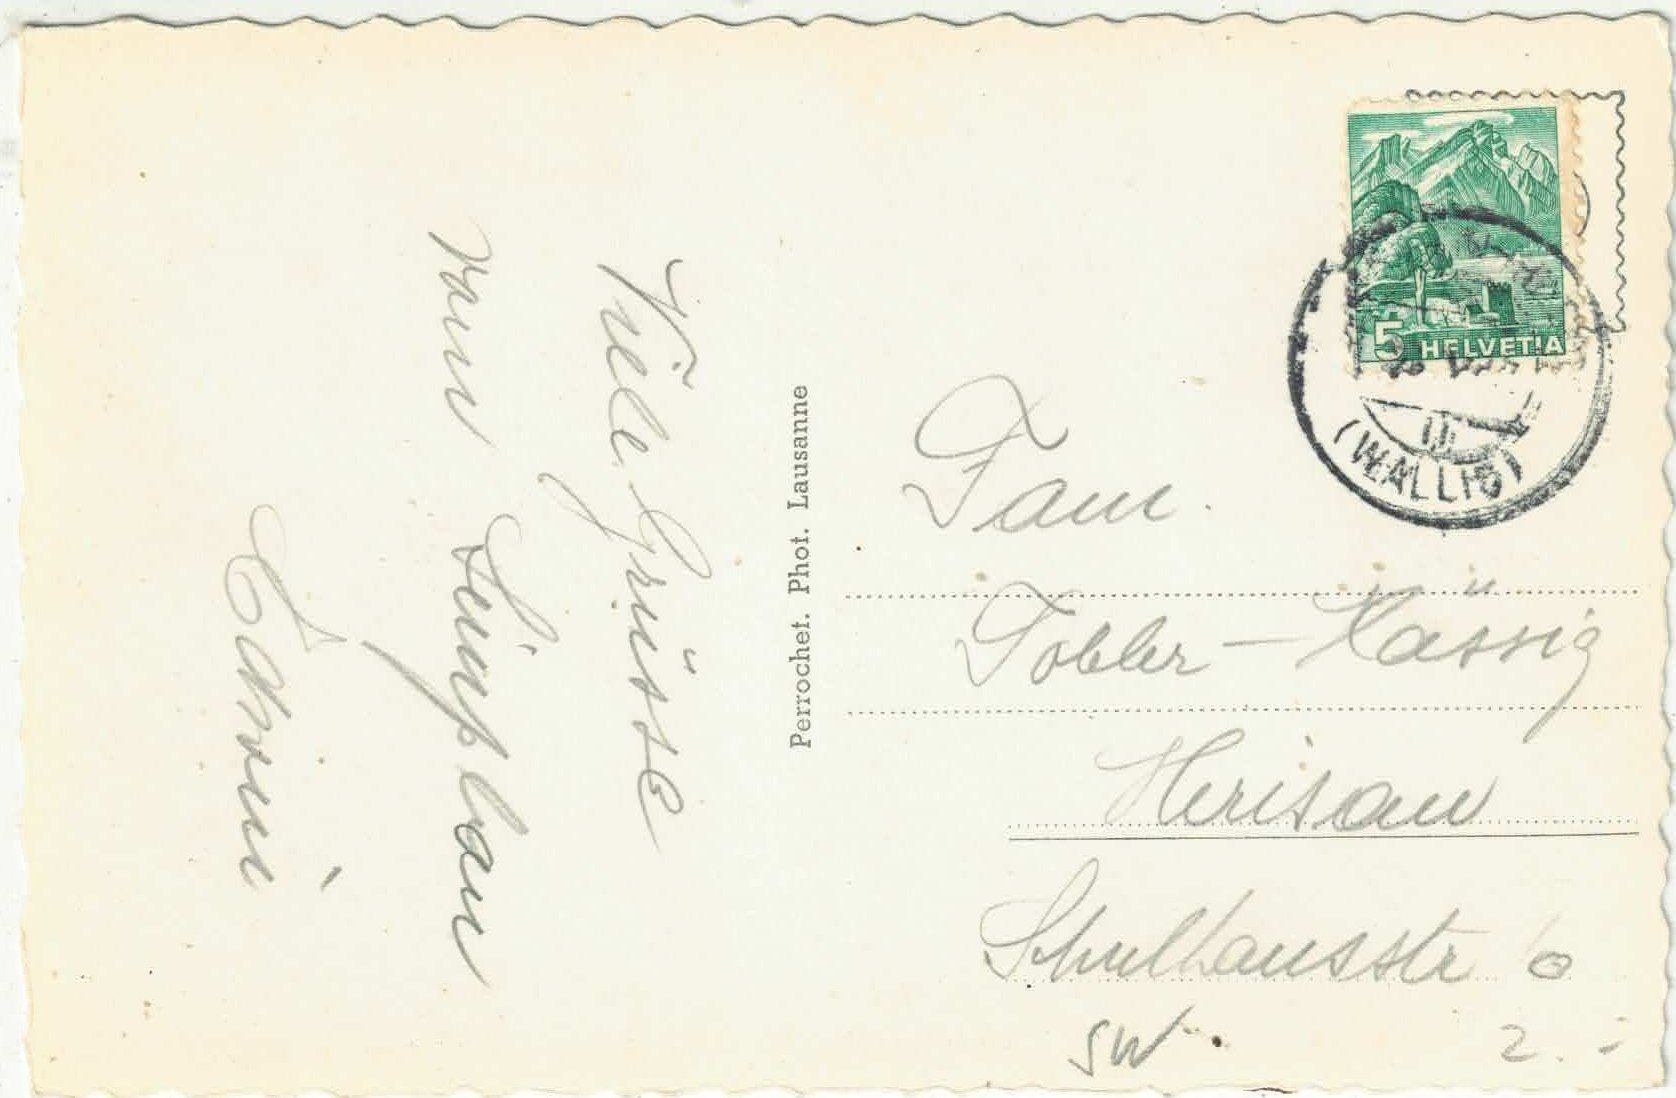 Viele Grüsse
vom Simplon
Edwin
Perrochet. Phot. Lausanne
5 HELVETIA
(WALLIS)
Fam.
Tobler - Kässig
Herisau
Schulhausstr 6
SW
2. -